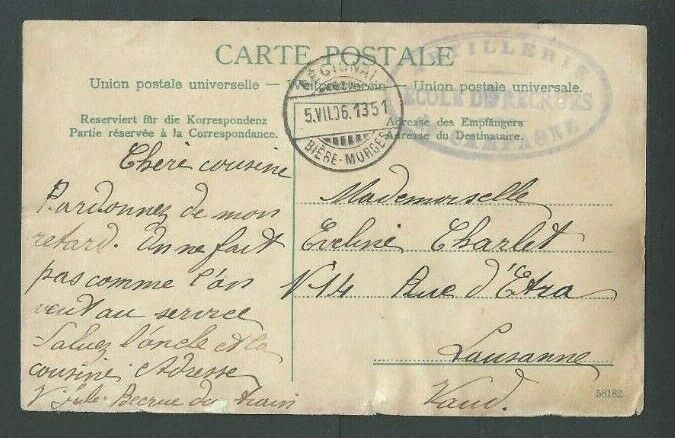 CARTE POSTALE
Union postale universelle — Weltpostverein — Union postale universale.
Reserviert für die Korrespondenz
Partie réservée à la Correspondance.
Adresse des Empfängers
Adresse du Destinataire.
RÉGIONAL
5.VII.06.1351
BIÈRE-MORGES
ARTILLERIE
ECOLE DE RECRUES
CAMPAGNE
Chère cousine
Pardonnez de mon
retard. On ne fait
pas comme l'on
veut au service
Saluez l'oncle et la
cousine Adresse
Recrue du train
Mademoiselle
Eveline Charlet
No 14 Rue d'Etra
Lausanne
Vaud.
58182